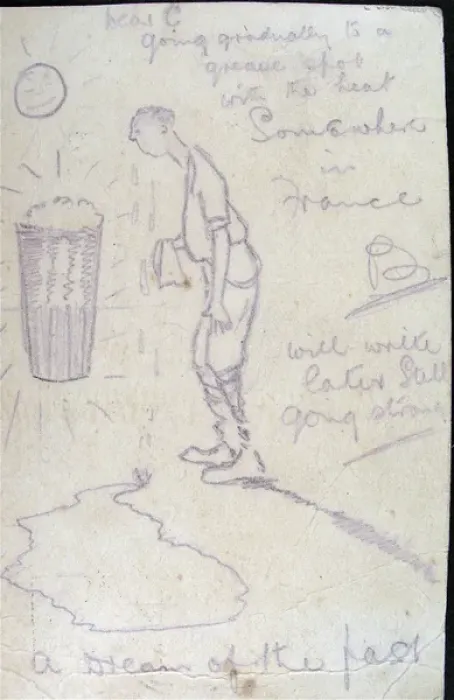 Dear C
going gradually to a
grease spot
with the heat
Somewhere
in
France
B
will write
later Still
going strong
a Dream of the past